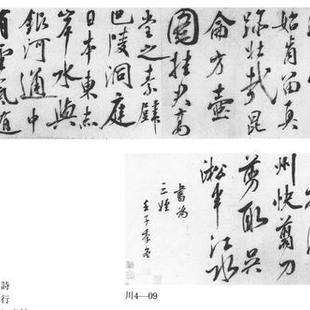 始肯留真
跡壯哉昆
侖方壺
圖挂君高
堂之素壁
巴陵洞庭
日本東赤
岸水與
銀河通中
有雲氣
州快剪刀
剪取吳
淞半江水
書為
三姪
壬子季冬
詩
行
川4—09